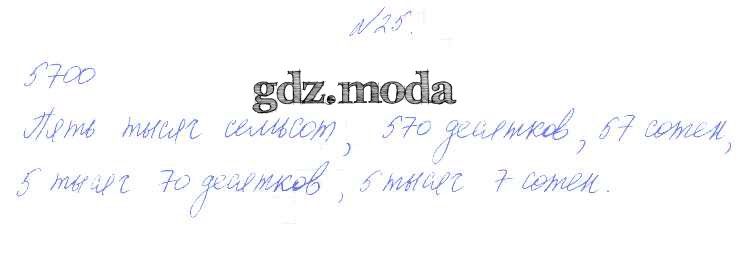 №25.
5700
gdz.moda
Пять тысяч семьсот, 570 десятков, 57 сотен,
5 тысяч 70 десятков, 5 тысяч 7 сотен.